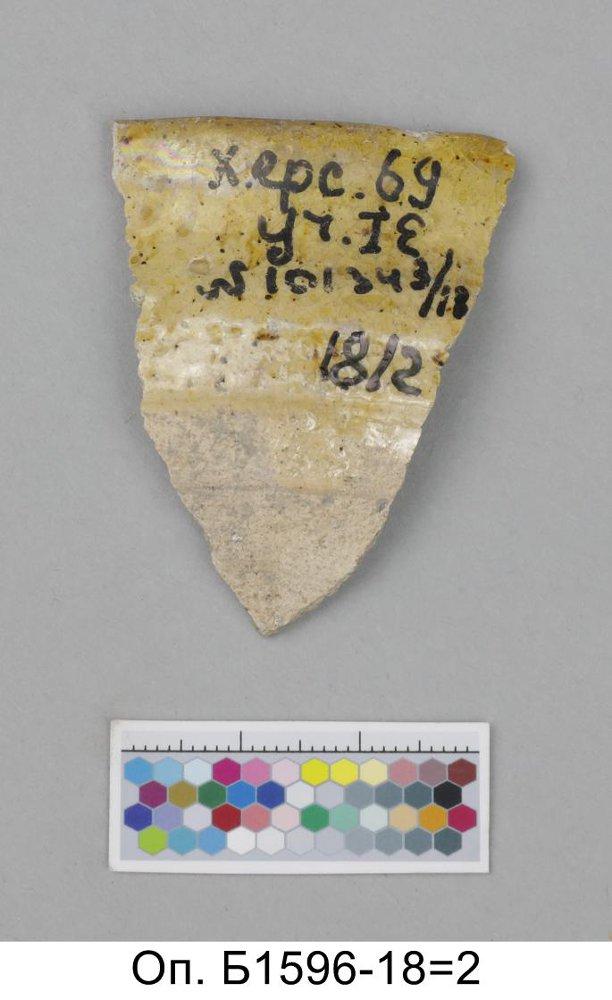 Херс. 69
уч. IE
№ 101343/18
18/2
Оп. Б1596-18=2